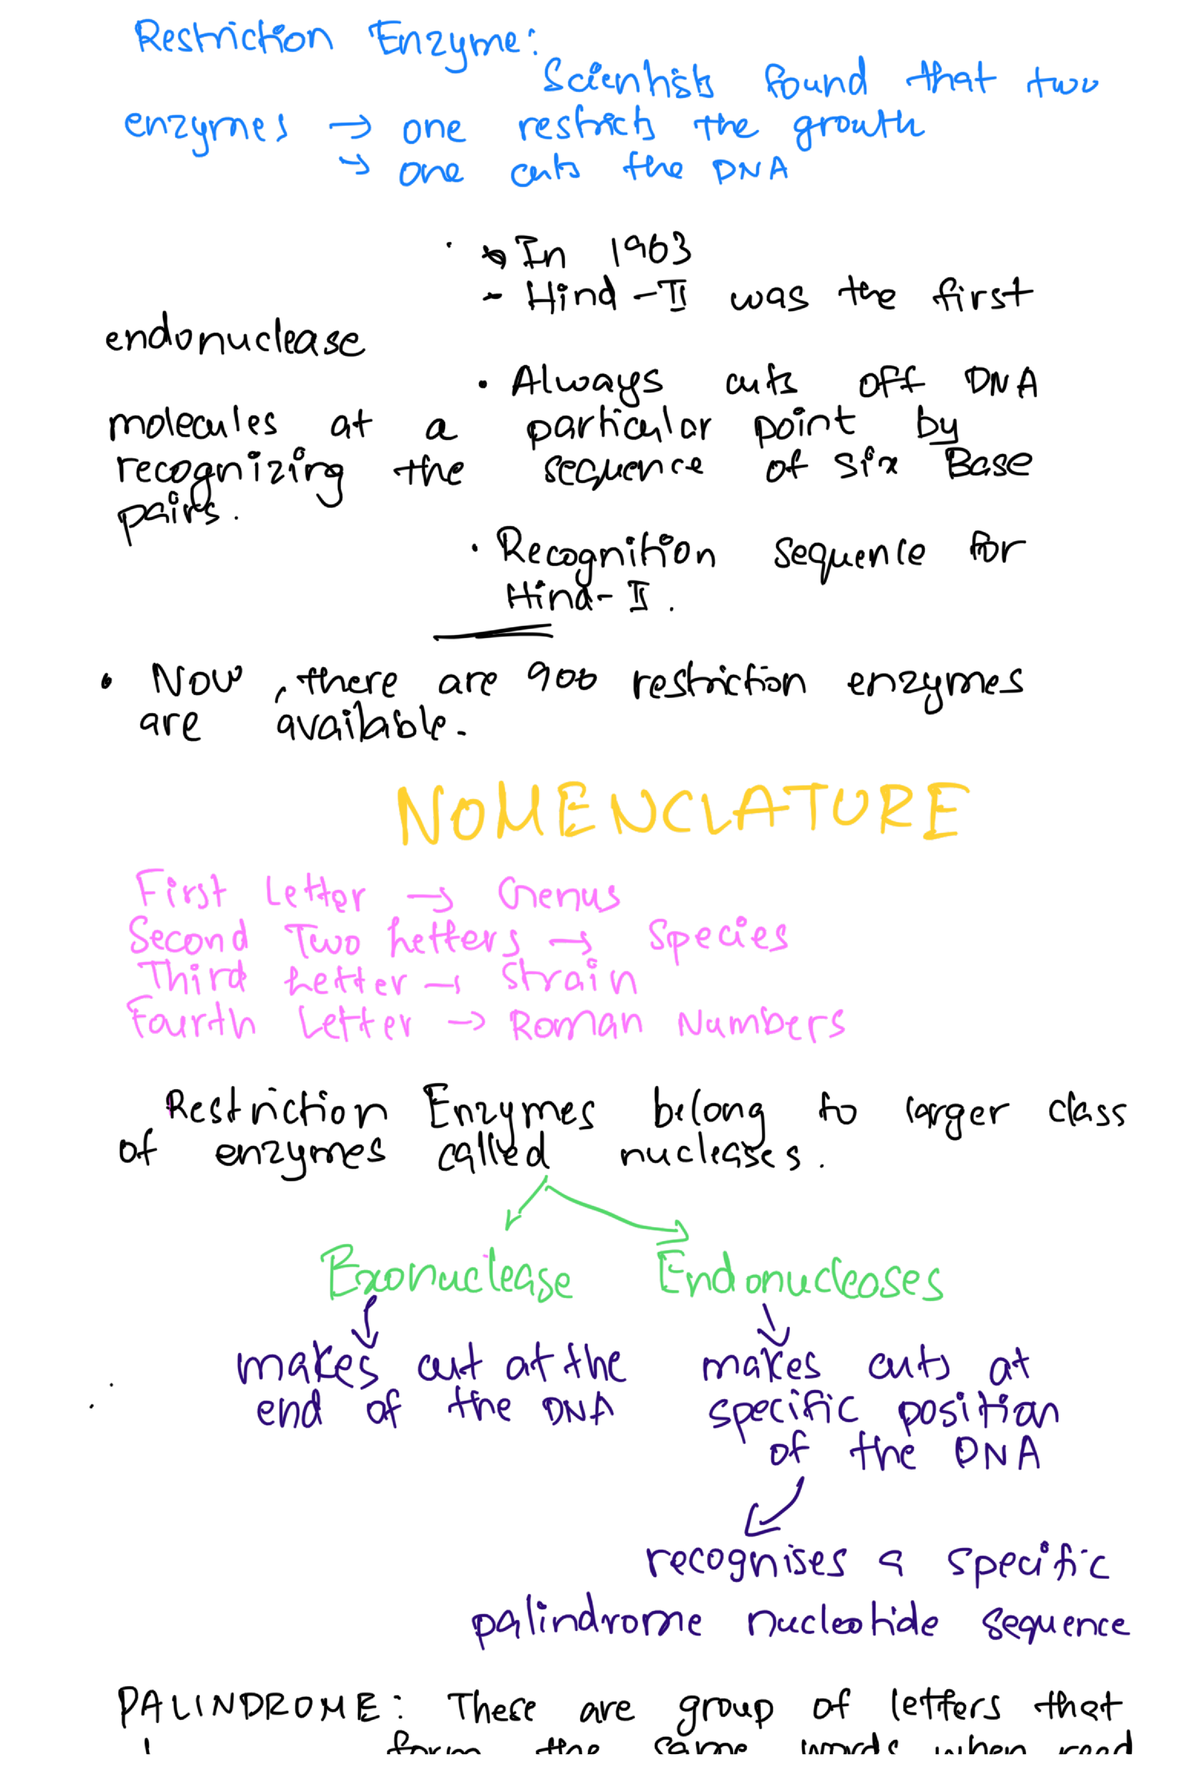 Restriction Enzyme:
Scientists found that two
enzymes → one restricts the growth
→ one cuts the DNA
In 1963
- Hind-II was the first
endonuclease
• Always cuts off DNA
molecules at a particular point by
recognizing the sequence of six Base
pairs.
• Recognition sequence for
Hind-II.
• Now, there are 900 restriction enzymes
are available.
NOMENCLATURE
First Letter → Genus
Second Two Letters → Species
Third Letter → Strain
Fourth Letter → Roman Numbers
Restriction Enzymes belong to larger class
of enzymes called nucleases.
Exonuclease Endonucleases
makes cut at the makes cuts at
end of the DNA specific position
of the DNA
recognises a specific
palindrome nucleotide sequence
PALINDROME: These are group of letters that
form the same words when read